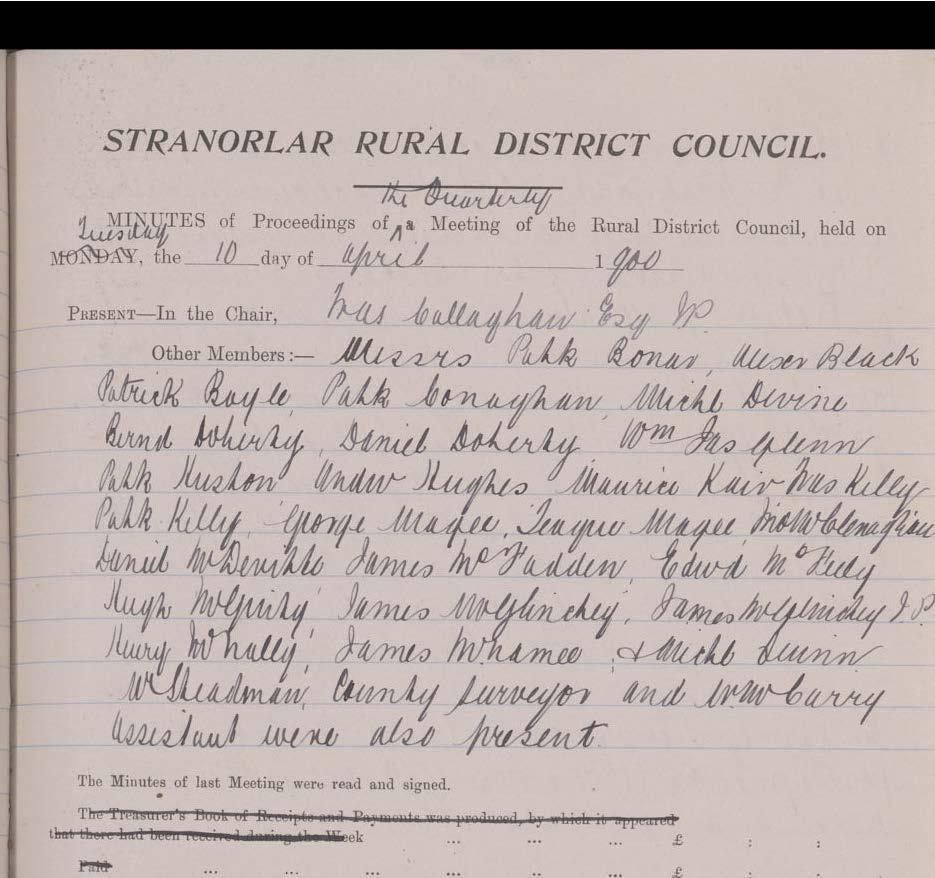 STRANORLAR RURAL DISTRICT COUNCIL.
the Quarterly
MINUTES of Proceedings of a Meeting of the Rural District Council, held on
Tuesday
MONDAY, the 10 day of April 1900
PRESENT—In the Chair, Callaghan Esq JP
Other Members:— Messrs Patk Bonar, Black
Patrick Boyle, Patk Conaghan, Michl Devine
Bernd Doherty, Daniel Doherty, Wm Jas Glenn
Patk Huston Andw Hughes Maurice Kelly
Patk Kelly, George Magee, Teague Magee, McClenaghan
Daniel McDevitte James McFadden, Edwd McFeely
Hugh McGinty James McGlinchey, James McGlinchey J.P.
Henry McNally, James McNamee, & Michl Quinn
Mr Steadman, County Surveyor and Mr McCarry
Assistant were also present
The Minutes of last Meeting were read and signed.
The Treasurer's Book of Receipts and Payments was produced, by which it appeared
that there had been received during the Week ... ... ... £ : :
Paid ... ... ... ... .. ... £ : :